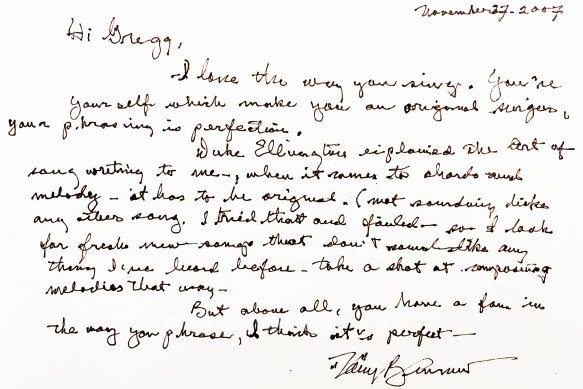 November 27-2007
Hi Gregg,
I love the way you sing. You're
yourself which make you an original singer,
your phrasing is perfection.
Duke Ellington explained the art of
song writing to me-, when it comes to chords and
melody - it has to be original. (not sounding like
any other song. I tried that and failed - so I look
for fresh new songs that don't sound like any
thing I've heard before - take a shot at composing
melodies that way -
But above all, you have a fan in
the way you phrase, I think it's perfect -
"Tony" Bennett